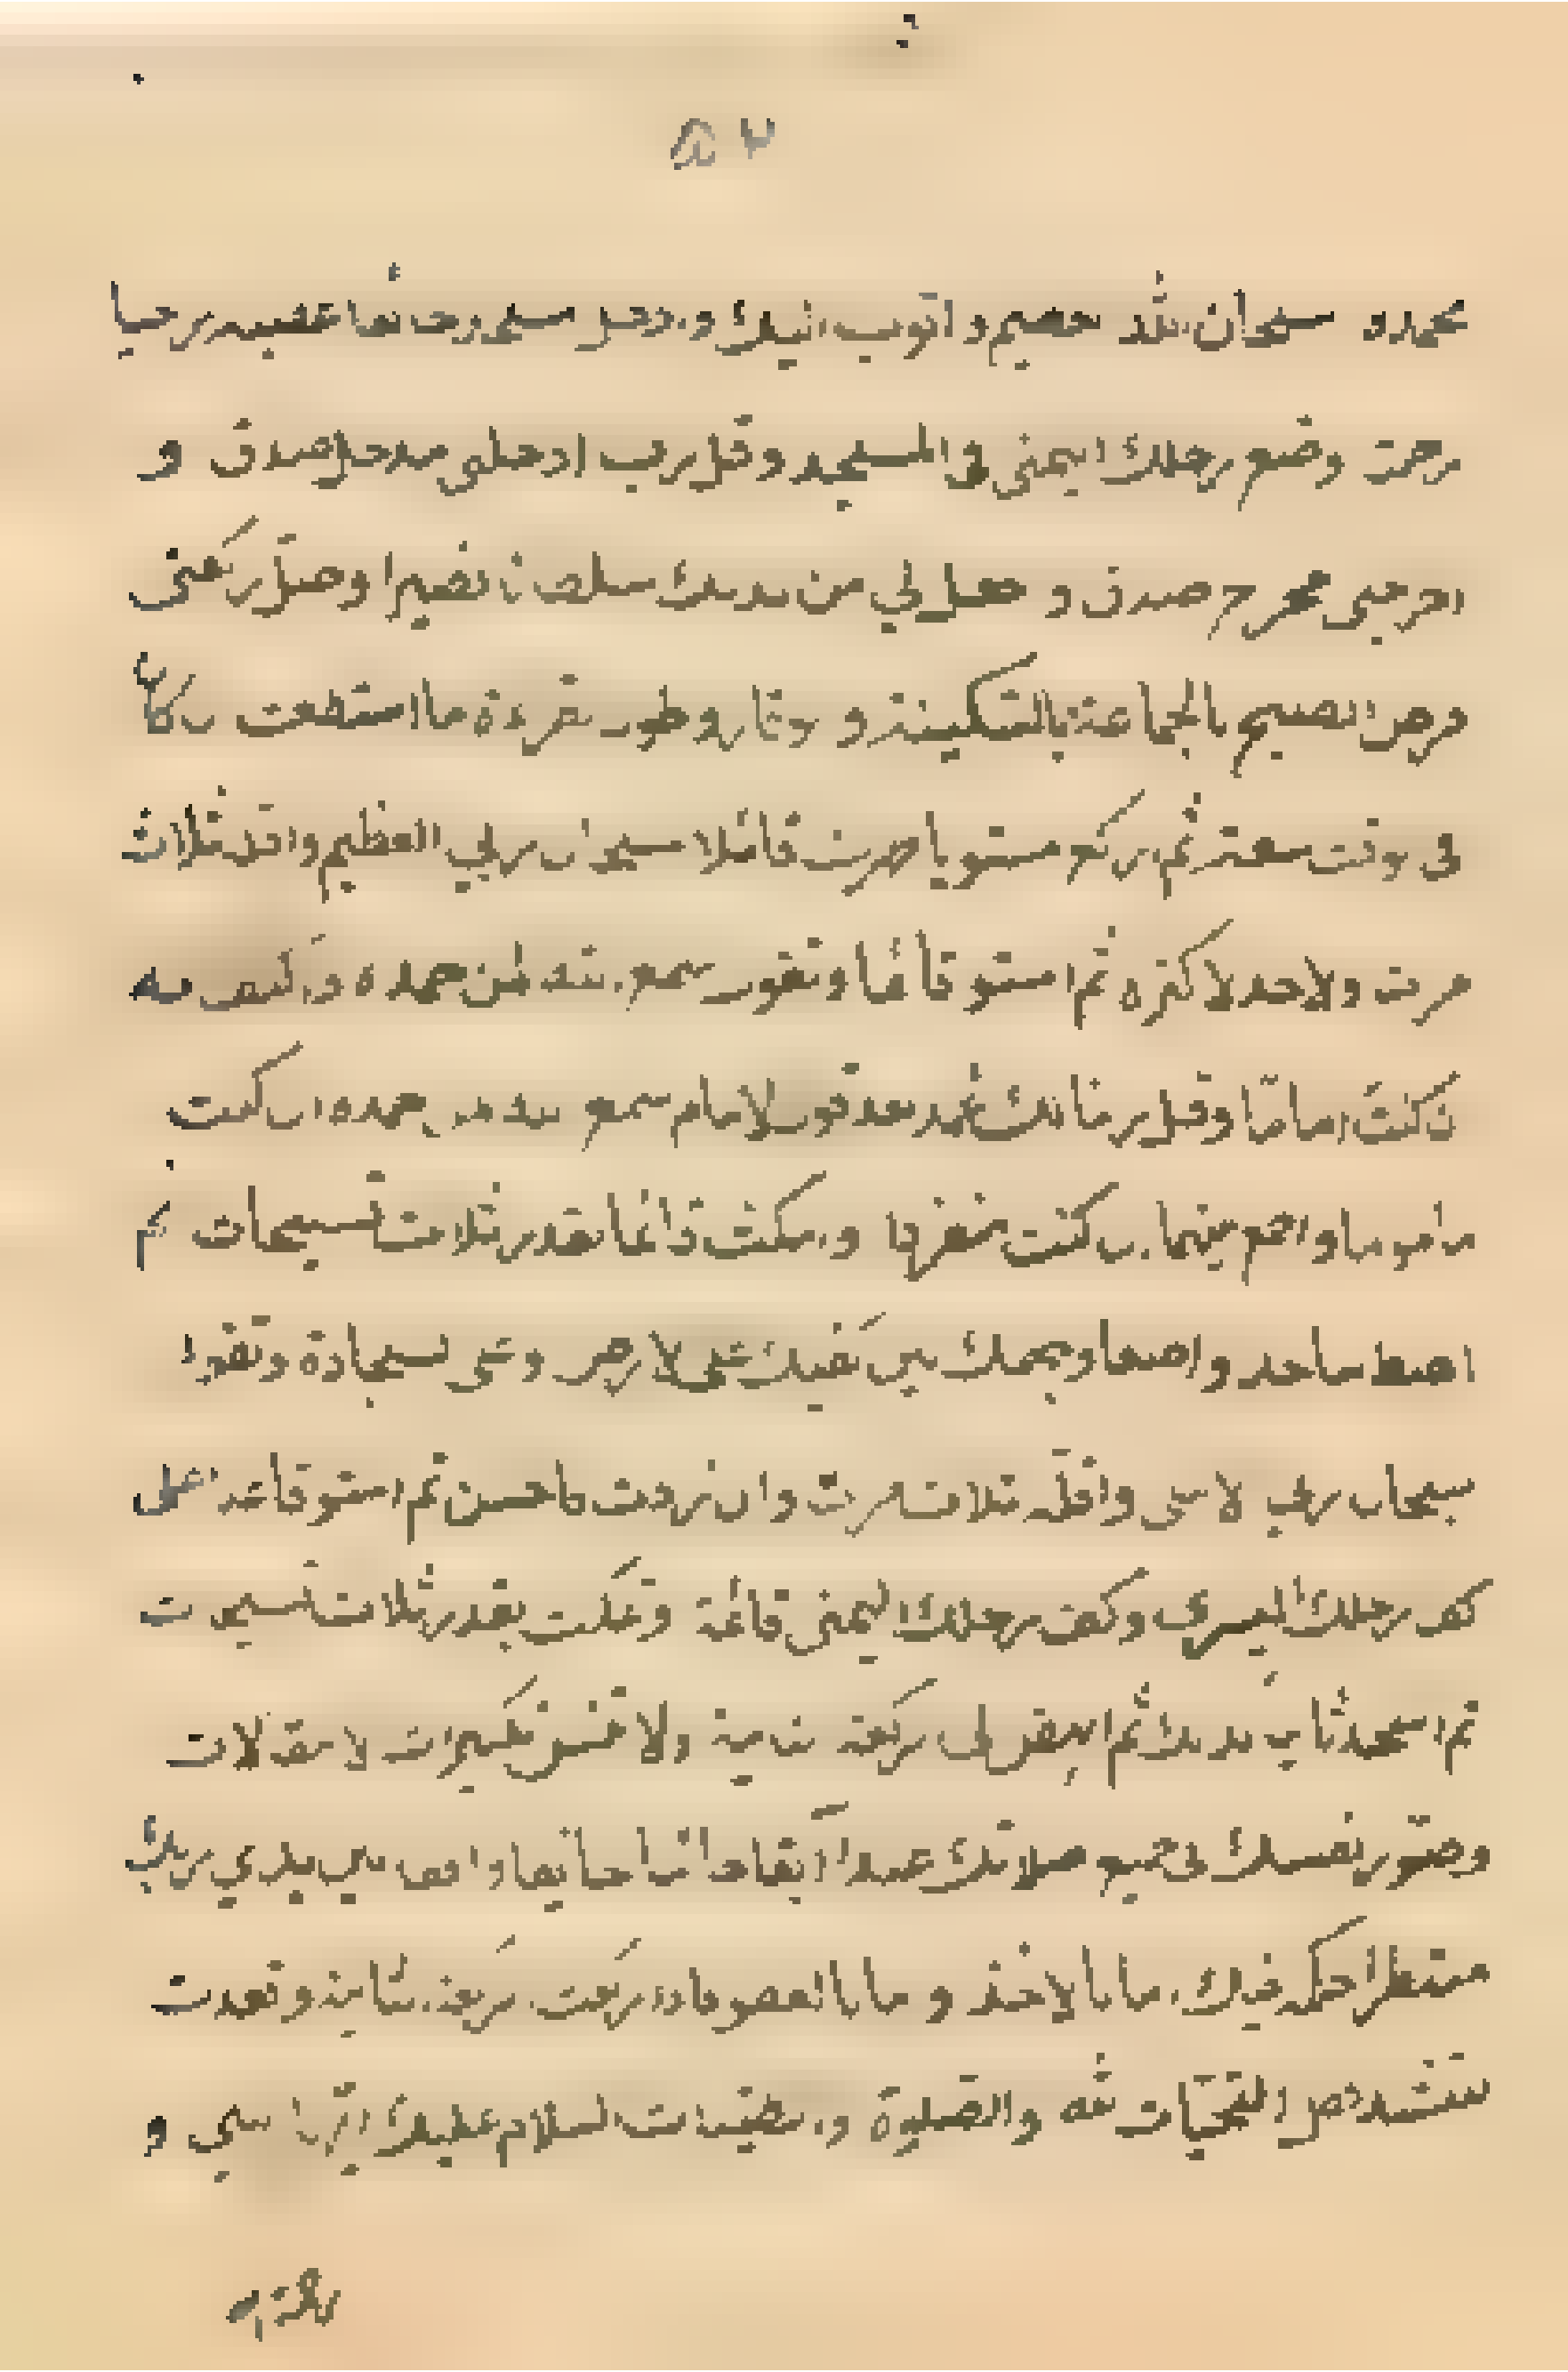 ٥٧
بحمده سبحان الله العظيم واتوب اليك وادخل المسجد خائفا من غضبه راجيا
رحمته وضع رجلك اليمنى فى المسجد وقل رب ادخلنى مدخل صدق و
اخرجنى مخرج صدق واجعل لي من لدنك سلطانا نصيرا وصل ركعتى
فرض الصبح بالجماعة بالسكينة والوقار وطول القراءة ما استطعت ان كان
فى الوقت سعة ثم اركع مستويا ظهرك قائلا سبحان ربي العظيم واقله ثلاث
مرات ولا حد لاكثره ثم استو قائما وتقول سمع الله لمن حمده
ان كنت اماما وقل ربنا لك الحمد بعد قول الامام سمع الله لمن حمده ان كنت
مأموما واجمع بينهما ان كنت منفردا وامكث قائما بقدر ثلاث تسبيحات ثم
اهبط ساجدا واضعا وجهك بين كفيك على الارض او على السجادة وتقول
سبحان ربي الاعلى واقله ثلاث مرات وان زدت فاحسن ثم استو قاعدا على
كف رجلك اليسرى وكف رجلك اليمنى قائمة وامكث بقدر ثلاث تسبيحات
ثم اسجد ثانيا كذلك ثم انتقل الى الركعة الثانية ولا تنس تكبيرات الانتقالات
وصور نفسك فى جميع صلاتك عبدا آبقا خائفا واقفا بين يدي ربك
منتظرا حكمه فيك اما بالاخذ واما بالعفو فاذا ركعت الركعة الثانية وقعدت
للتشهد فقل التحيات لله والصلوة والطيبات السلام عليك ايها النبي و